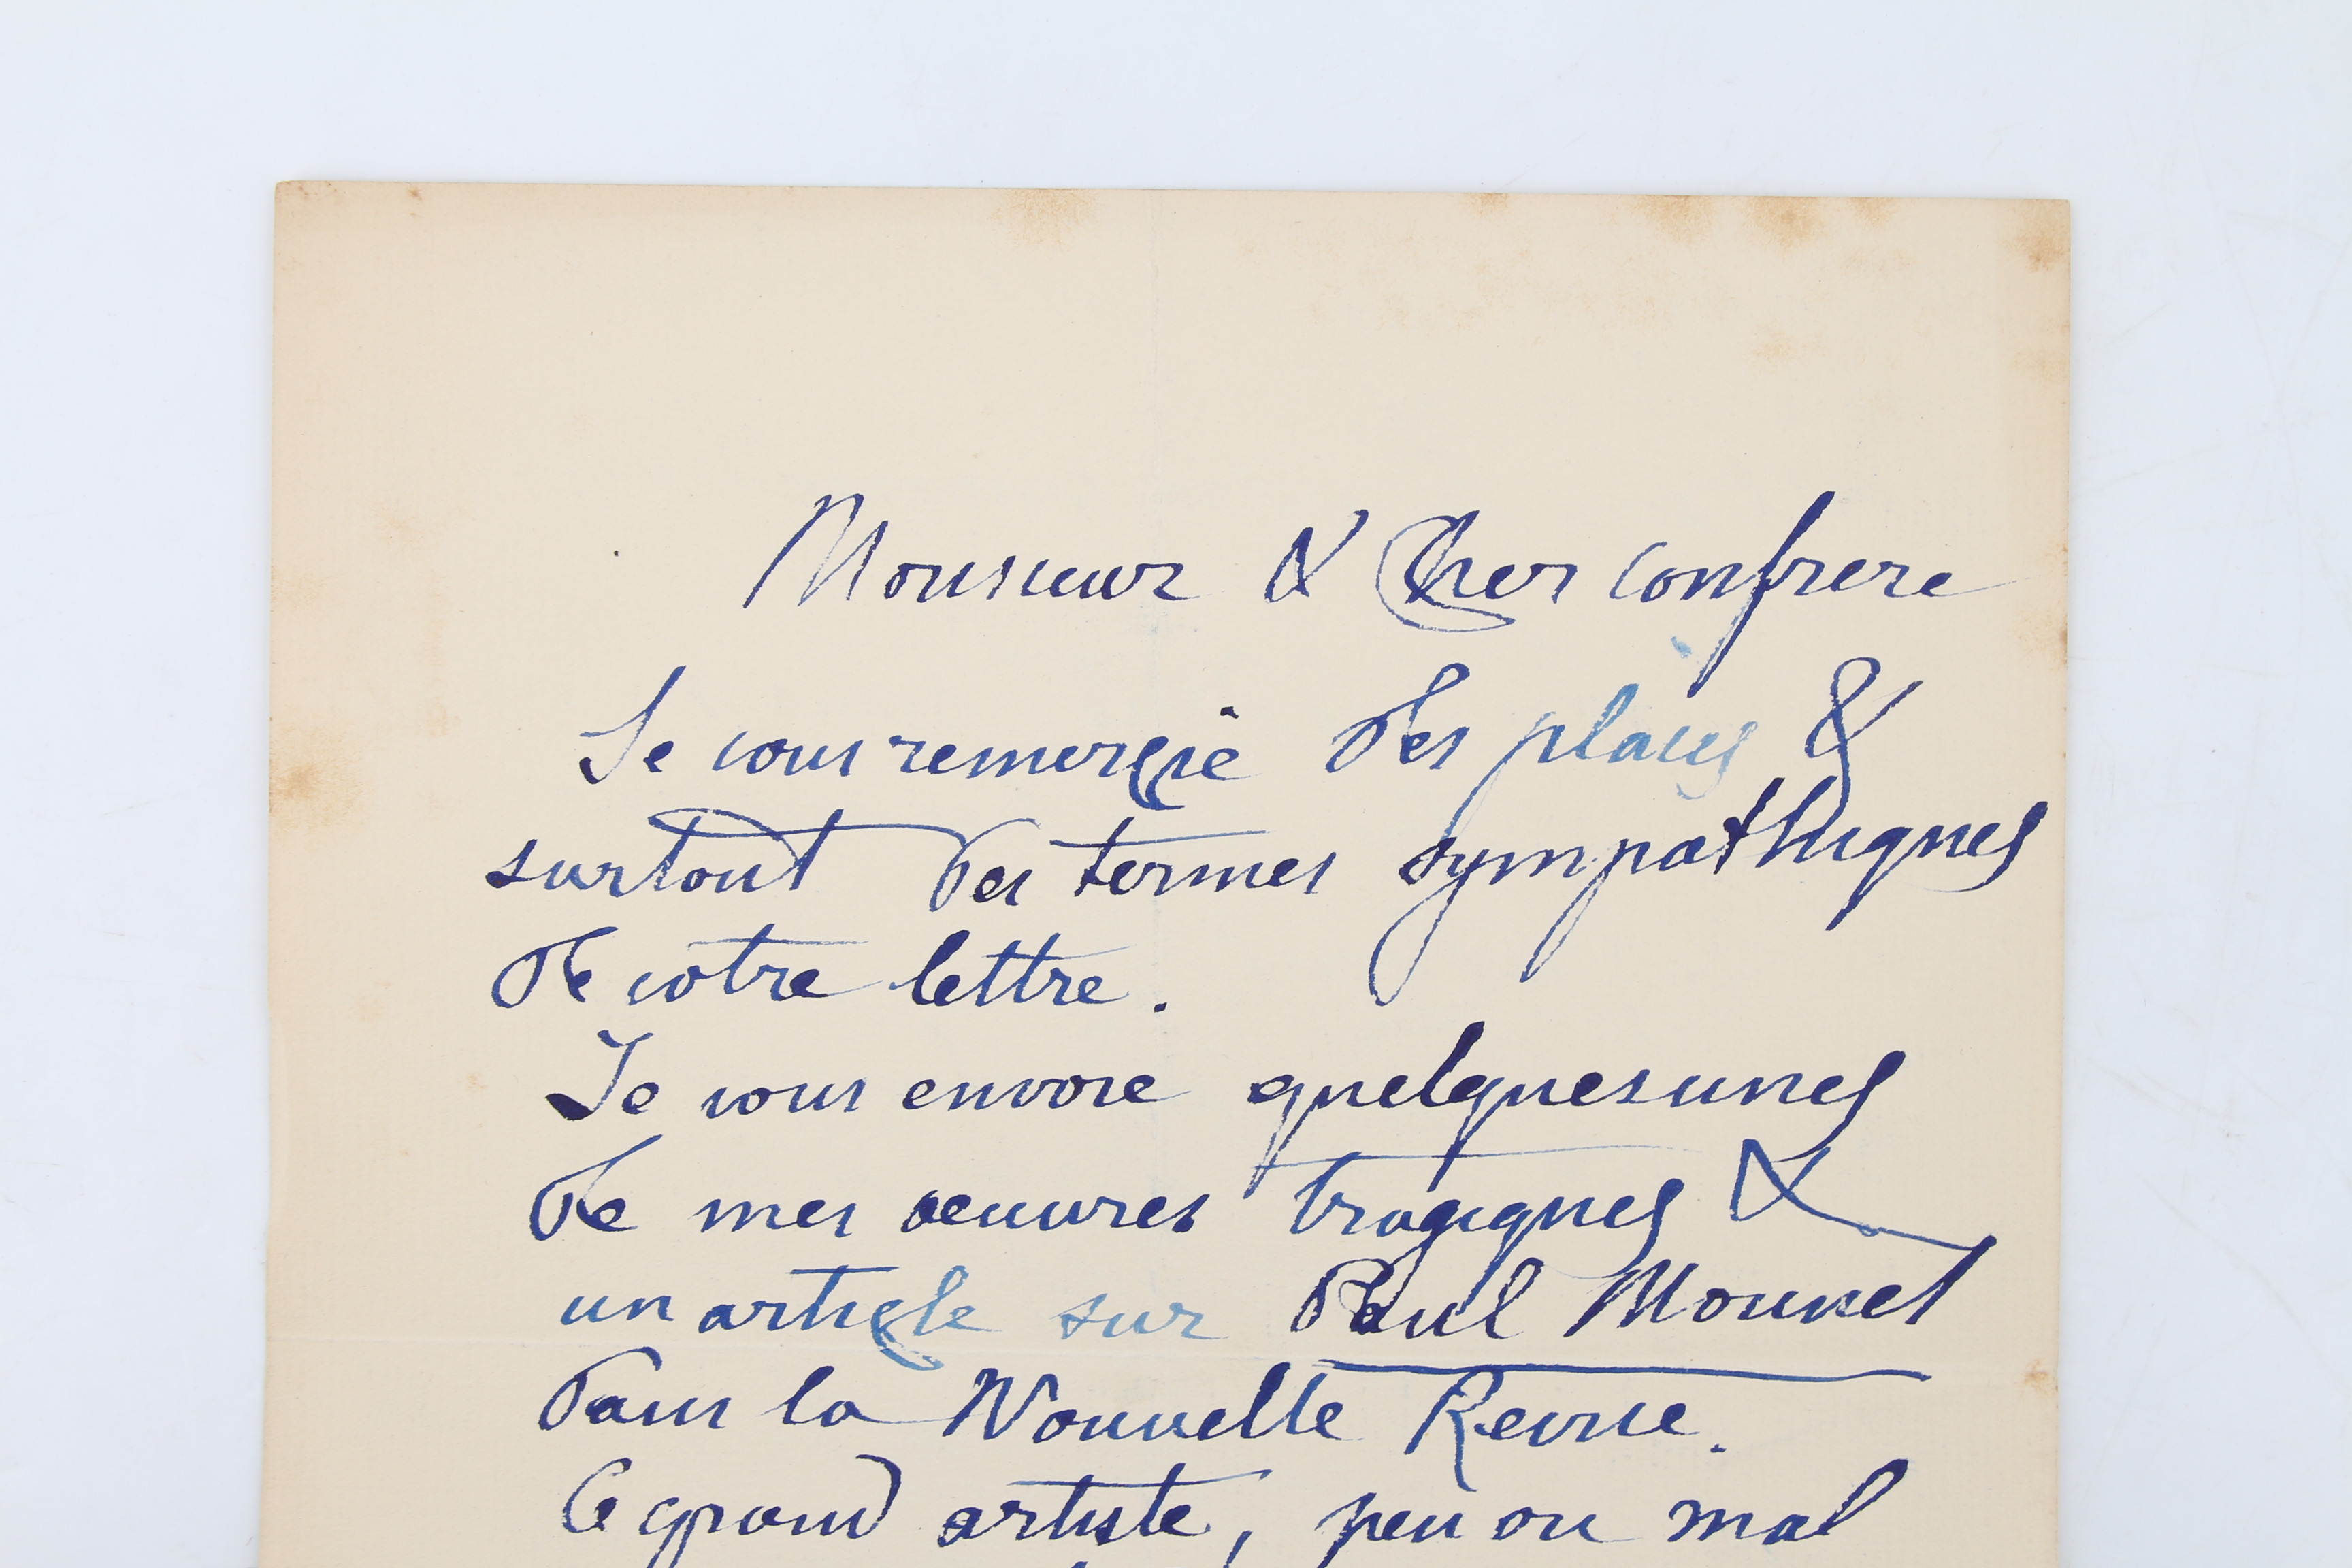 Monsieur & Cher confrere
Je vous remercie des places &
surtout des termes sympathiques
de votre lettre.
Je vous envoie quelquesunes
de mes oeuvres tragiques &
un article sur Paul Mounet
dans la Nouvelle Revue.
Ce grand artiste, peu ou mal